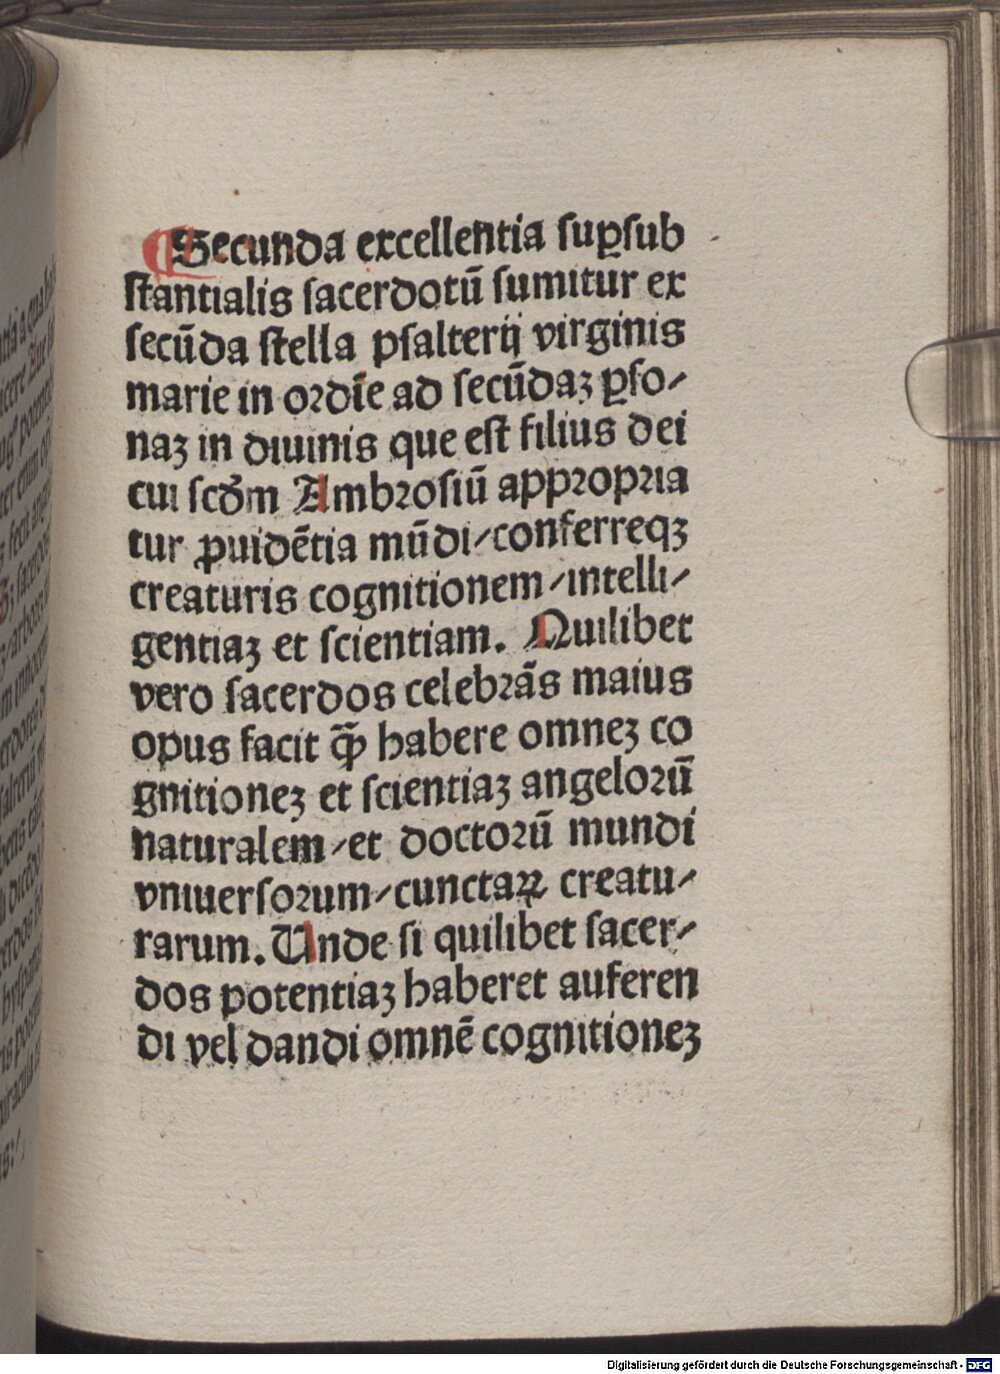 ¶Secunda excellentia suꝑsub
stantialis sacerdotū sumitur ex
secūda stella psalterij virginis
marie in ordīe ad secūdaꝫ ꝑso⸗
naꝫ in diuinis que est filius dei
cui scd̄m Ambrosiū appropria
tur ꝓuidētia mūdi/conferreqꝫ
creaturis cognitionem/intelli⸗
gentiaꝫ et scientiam. Quilibet
vero sacerdos celebrās maius
opus facit qꝫ̄ habere omneꝫ co
gnitioneꝫ et scientiaꝫ angelorū
naturalem/et doctorū mundi
vniuersorum/cunctaꝝ creatu⸗
rarum. Unde si quilibet sacer⸗
dos potentiaꝫ haberet auferen
di vel dandi omnē cognitioneꝫ
Digitalisierung gefördert durch die Deutsche Forschungsgemeinschaft - DFG